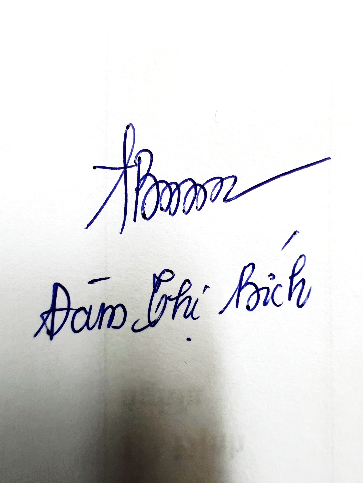 Đàm Thị Bích